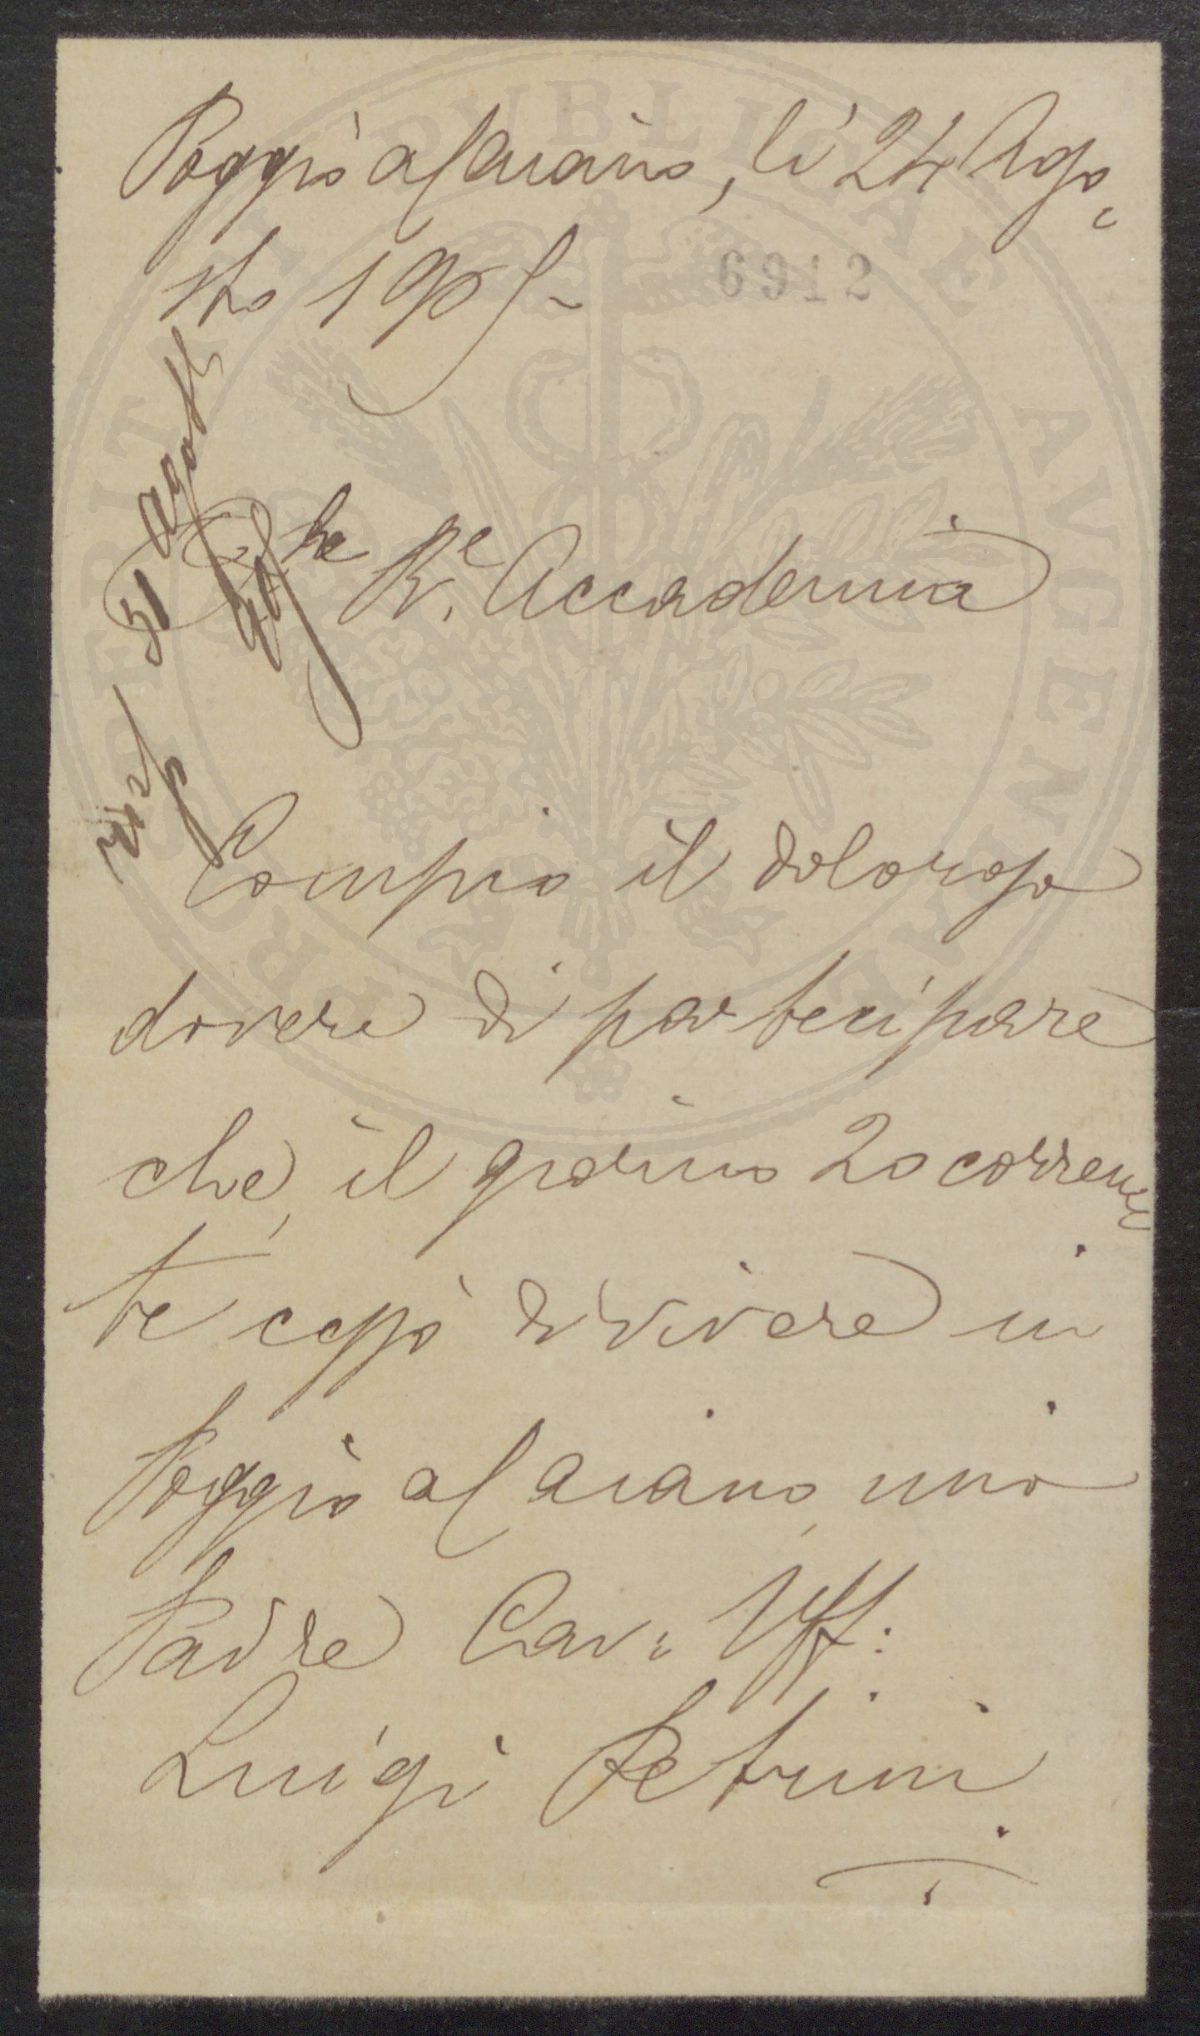 Poggio a Caiano, li 24 Ago,
sto 1905-
6912
R.e Accademia
31 agosto
Compio il doloroso
dovere di partecipare
che, il giorno 20 corren,
te cessò di vivere in
Poggio a Caiano, mio
Padre Cav: Uff:
Luigi Petrini.
PROSPERITATI PVBLICAE AVGENDAE